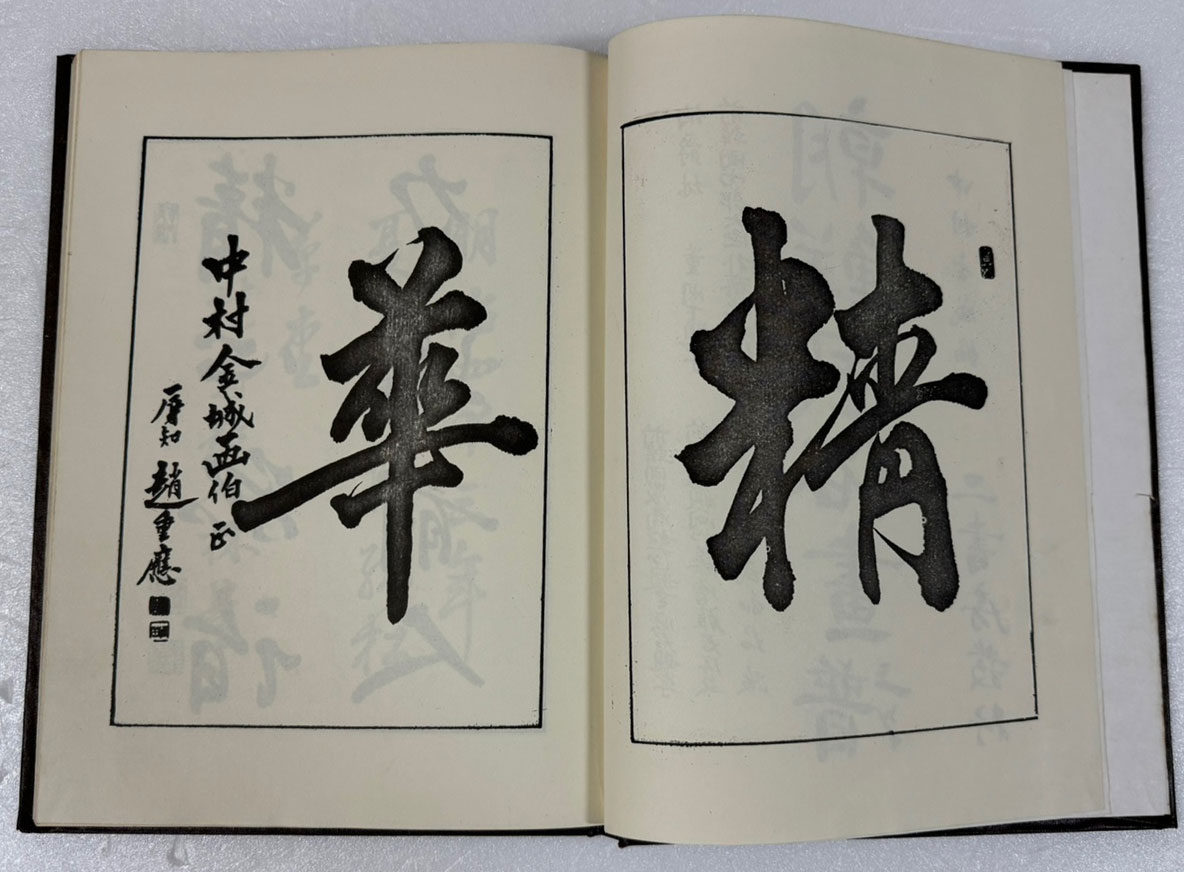 精
華
中村金城画伯 正
辱知 趙重應